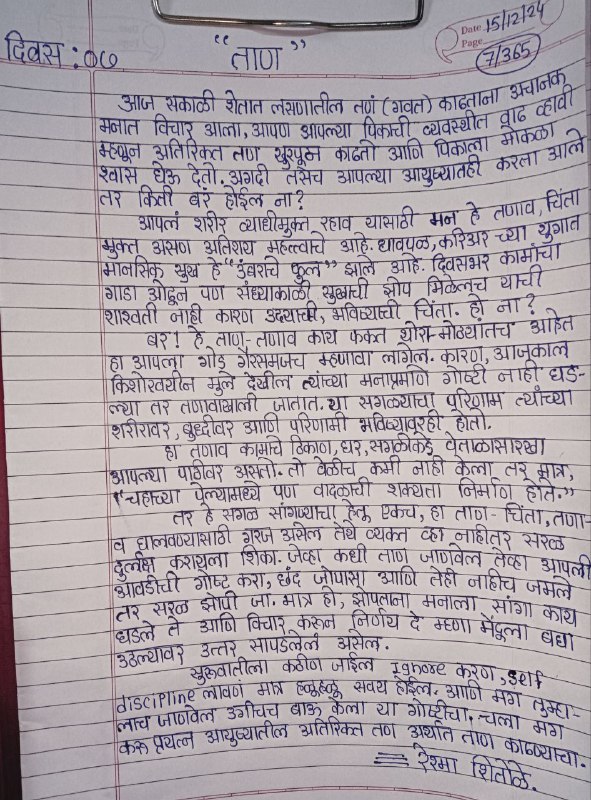 Date 15/12/24
Page
7/365
दिवस : ०७
“ताण”
आज सकाळी शेतात लसणातील तणं (गवत) काढताना अचानक
मनात विचार आला, आपण आपल्या पिकाची व्यवस्थीत वाढ व्हावी
म्हणून अतिरिक्त तण खुरपून काढतो आणि पिकाला मोकळा
श्वास घेऊ देतो. अगदी तसेच आपल्या आयुष्यातही करता आले
तर किती बरं होईल ना?
आपलं शरीर व्याधीमुक्त रहाव यासाठी मन हे तणाव, चिंता
मुक्त असणं अतिशय महत्त्वाचे आहे. धावपळ, करिअर च्या युगात
मानसिक सुख हे “उंबराचे फुल” झाले आहे. दिवसभर कामाचा
गाडा ओढून पण संध्याकाळी सुखाची झोप मिळेलच याची
शाश्वती नाही कारण उद्याची, भविष्याची चिंता. हो ना?
बरं! हे ताण-तणाव काय फक्त थोरा-मोठ्यांतच आहेत
हा आपला गोड गैरसमजच म्हणावा लागेल. कारण, आजकाल
किशोरवयीन मुले देखील त्यांच्या मनाप्रमाणे गोष्टी नाही घड-
ल्या तर तणावाखाली जातात. या सगळ्याचा परिणाम त्यांच्या
शरीरावर, बुध्दीवर आणि परिणामी भविष्यावरही होतो.
हा तणाव कामाचे ठिकाण, घर, सगळीकडे वेताळासारखा
आपल्या पाठीवर असतो. तो वेळीच कमी नाही केला तर मात्र,
“चहाच्या पेल्यामध्ये पण वादळाची शक्यता निर्माण होते.”
तर हे सगळं सांगण्याचा हेतू एकच, हा ताण-चिंता, तणा-
व घालवण्यासाठी गरज असेल तेथे व्यक्त व्हा नाहीतर सरळ
दुर्लक्ष करायला शिका. जेव्हा कधी ताण जाणवेल तेव्हा आपली
आवडीची गोष्ट करा, छंद जोपासा आणि तेही नाहीच जमले
तर सरळ झोपी जा. मात्र हो, झोपताना मनाला सांगा काय
घडले ते आणि विचार करून निर्णय दे म्हणा मेंदूला बघा
उठल्यावर उत्तर सापडलेलं असेल.
सुरुवातीला कठीण जाईल Ignore करण, self
discipline लावणं मात्र हळूहळू सवय होईल. आणि मग तुम्हा-
लाच जाणवेल उगीचच बाऊ केला या गोष्टीचा. चला मग
करू प्रयत्न आयुष्यातील अतिरिक्त तण अर्थात ताण काढण्याचा.
रेश्मा शितोळे.